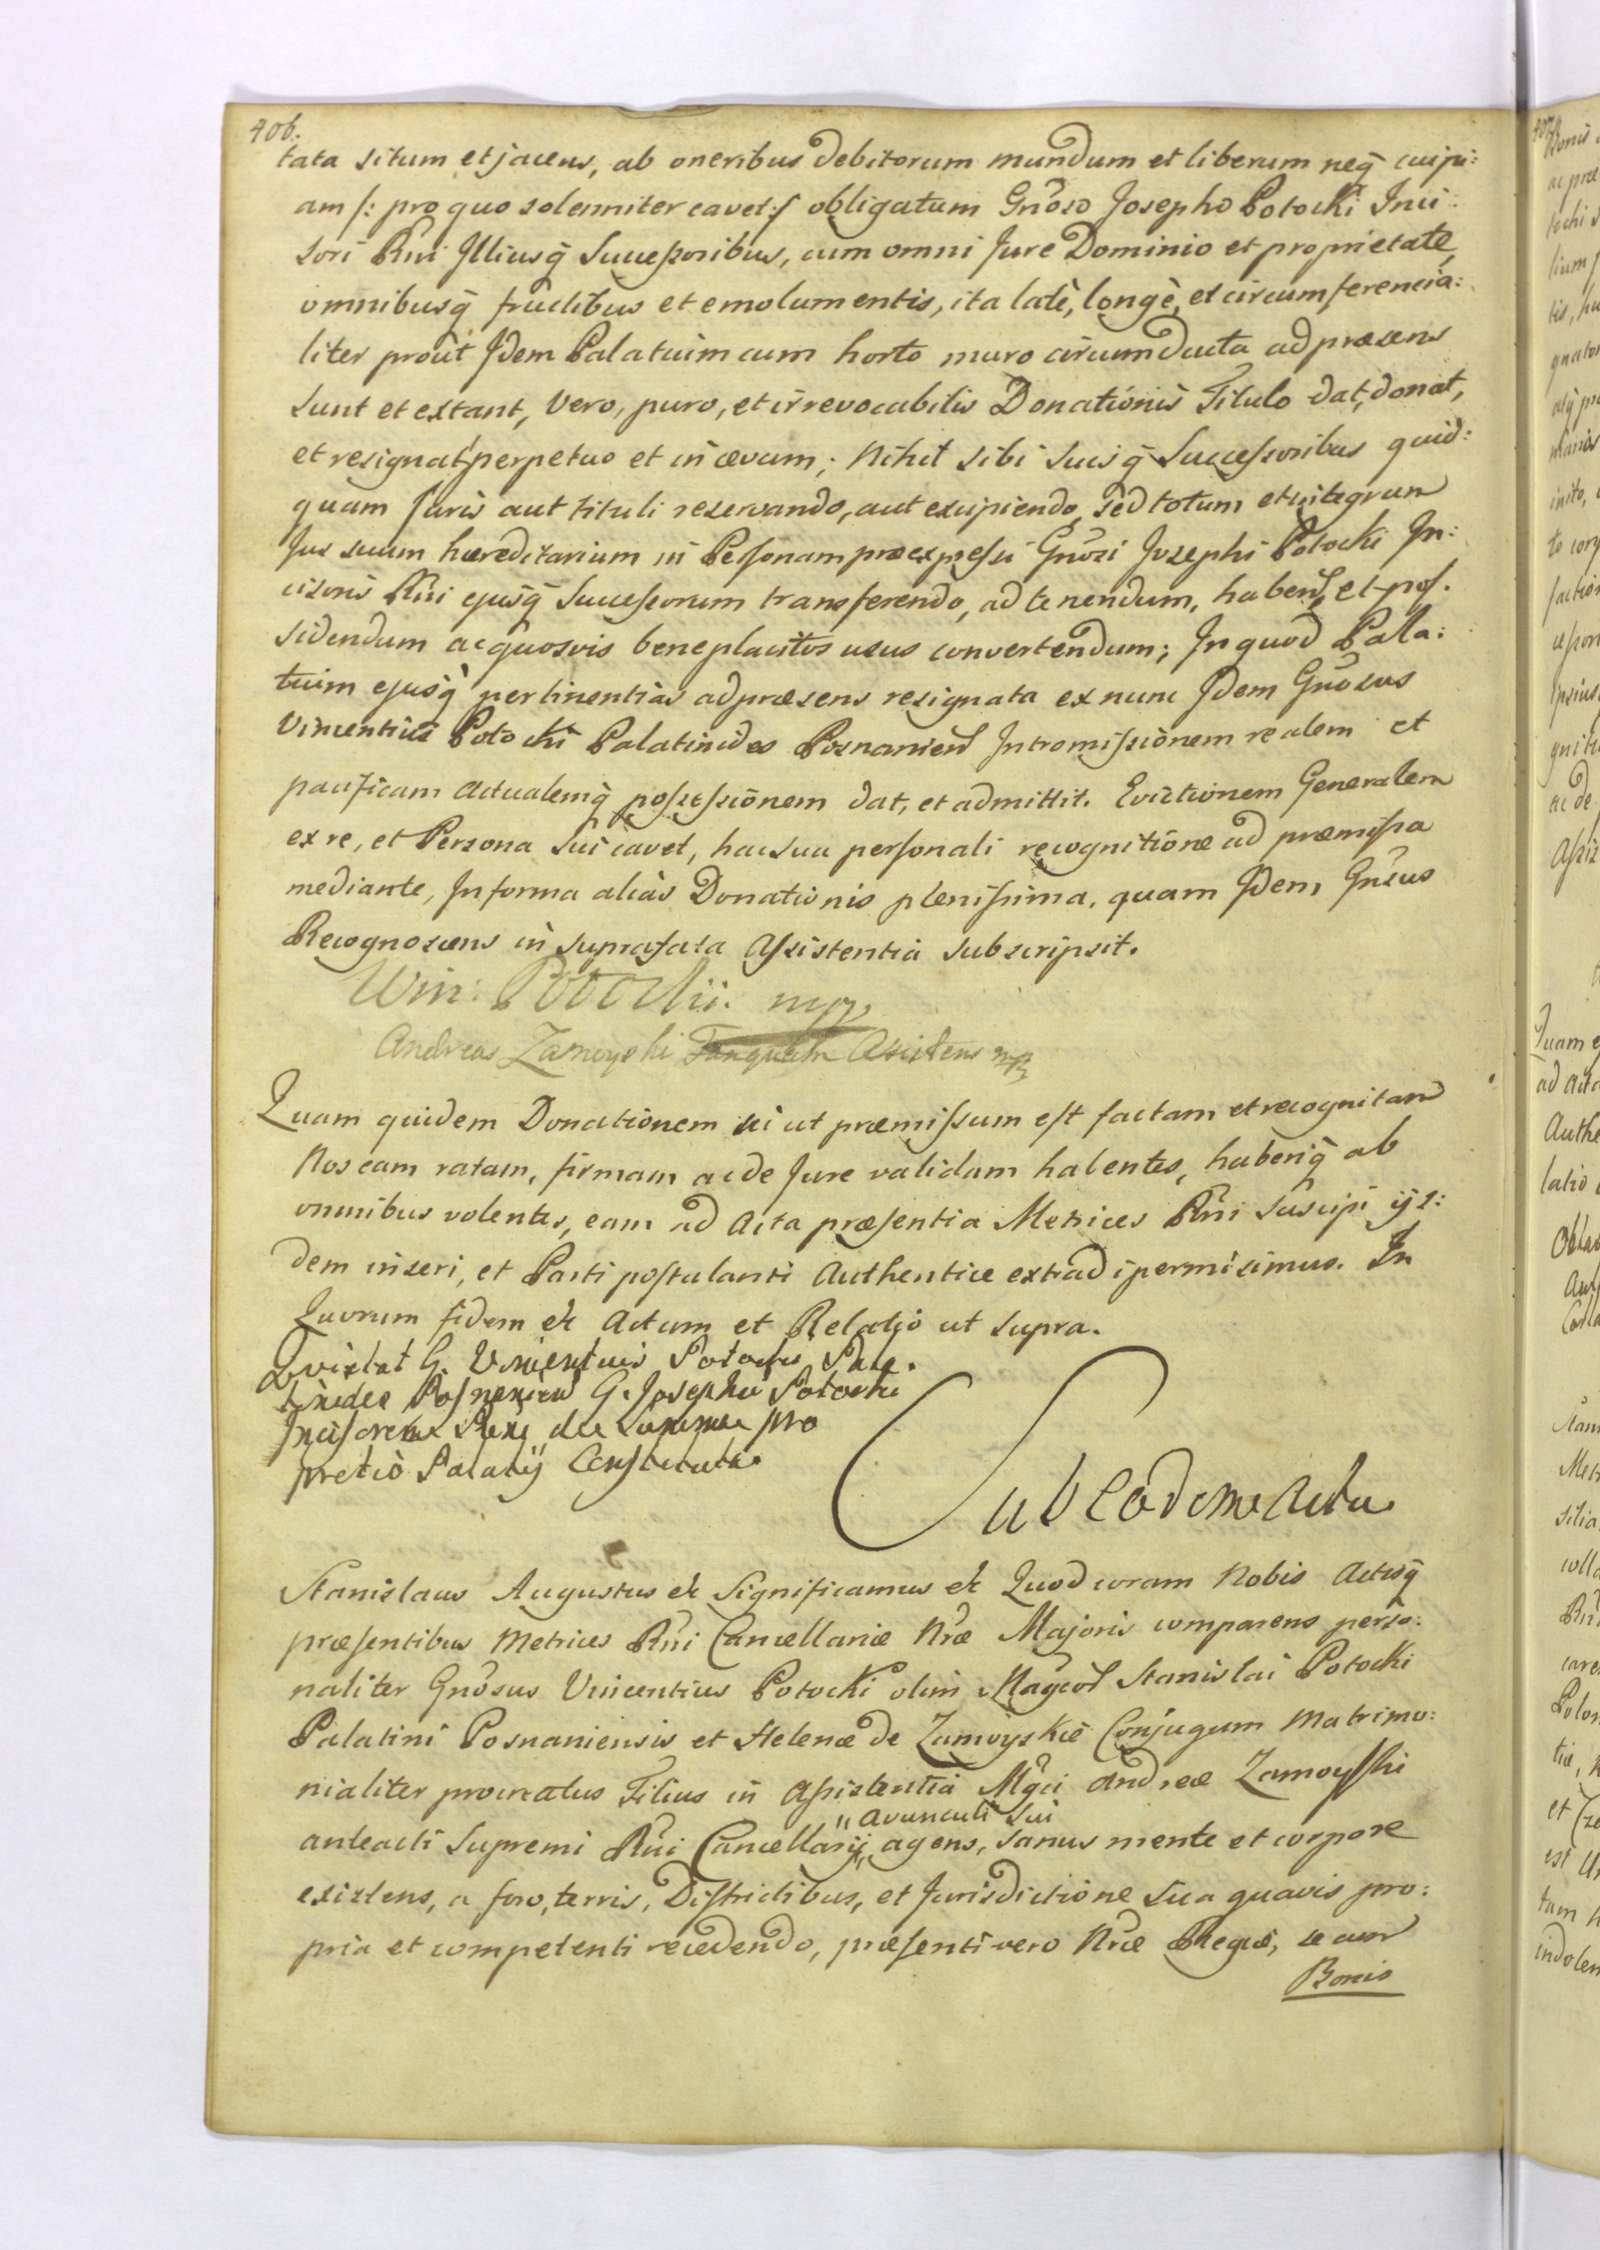 406.
tata situm et jacens, ab oneribus debitorum mundum et liberum neq̃ cuipi:
am /: pro quo solenniter cavet :/ obligatum Gñoso Josepho Potocki Inci:
sori Rñi Illiusq̃ Successoribus, cum omni Jure Dominio et proprietate,
omnibusq̃ fructibus et emolumentis, ita latè, longè, et circumferencia:
liter proùt Idem Palatium cum horto muro circumducta ad præsens
sunt et extant, vero, puro, et irrevocabilis Donationis Titulo dat, donat,
et resignat perpetuo et in ævum; Nihil sibi suisq̃ Successoribus quid:
quam Juris aut tituli reservando, aut excipiendo, sed totum et integrum
Jus suum hæreditarium in Personam præexpressi Gñosi Josephi Potocki In:
cisoris Rñi ejusq̃ Successorum transferendo, ad tenendum, habend, et pos.
sidendum ac quosvis beneplacitos usus convertendum; In quod Palla:
tium ejusq̃ pertinentias ad præsens resignata ex nunc Idem Gñosus
Vincentius Potocki Palatinides Posnanien Intromissionem realem et
pacificam actualemq̃ possessionem dat, et admittit. Evictionem Generalem
ex re, et Persona sui cavet, hac sua personali recognitione ad præmissa
mediante, In forma aliàs Donationis plenissima, quam Idem Gñsus
Recognoscens in suprafata Assistentia subscripsit.
Win: Potockii. mp.
Andreas Zamoyski Tanquam Assistens mp
Quam quidem Donationem ut ut præmissum est factam et recognitam
Nos eam ratam, firmam ac de Jure validam habentes, haberiq̃ ab
omnibus volentes, eam ad Acta præsentia Metrices Rñi suscipi ijs:
dem inseri, et Parti postulanti Authentice extradi permisimus. In
Quorum fidem &c Actum et Relatio ut supra.
Quietat G. Vincentius Potocki Pala.
tinides Posnanien G. Josephum Potocki
Incisorem Regni de Summa pro
pretio Palatij Constituta.
Sub eodem Actu
Stanislaus Augustus &c Significamus &c Quod coram Nobis Actisq̃
præsentibus Metrices Rñi Cancellariæ Nræ Majoris comparens perso:
naliter Gñosus Vincentius Potocki olim Magcor Stanislai Potocki
Palatini Posnaniensis et Helenæ de Zamoyskie Conjugum Matrimo:
nialiter procreatus Filius in Assistentia Mgci Andreæ Zamoyski
" avunculi sui
anteacti Supremi Rñi Cancellarij " agens, sanus mente et corpore
existens, a foro, terris, Districtibus, et Jurisdictione sua quavis pro:
pria et competenti recedendo, præsenti vero Nræ Regiæ, se cum
Bonis